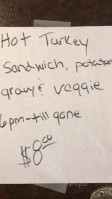 Hot Turkey
Sandwich, potatoes
gravy & veggie
6pm - till gone
$8.00